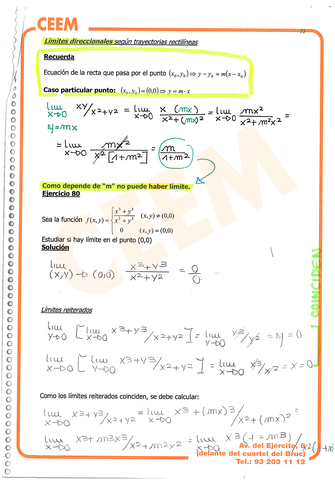 CEEM
53
Límites direccionales según trayectorias rectilíneas
Recuerda
Ecuación de la recta que pasa por el punto (x₀, y₀) ⇒ y − y₀ = m(x − x₀)
Caso particular punto: (x₀, y₀) = (0,0) ⇒ y = m·x
lim x→0 y=mx xy/x²+y² = lim x→0 x (mx)/x²+(mx)² = lim x→0 mx²/x²+m²x² =
= lim x→0 mx²/x²[1+m²] = m/1+m²
Como depende de "m" no puede haber límite.
Ejercicio 80
Sea la función f(x,y) = { x³+y³/x²+y² (x,y) ≠ (0,0)
0 (x,y) = (0,0)
Estudiar si hay límite en el punto (0,0)
Solución
lim (x,y)→(0,0) x³+y³/x²+y² = 0/0
Límites reiterados
lim y→0 [lim x→0 x³+y³/x²+y²] = lim y→0 y³/y² = y = 0
lim x→0 [lim y→0 x³+y³/x²+y²] = lim x→0 x³/x² = x = 0
COINCIDEN
Como los límites reiterados coinciden, se debe calcular:
lim x→0 x³+y³/x²+y² = lim x→0 x³+(mx)³/x²+(mx)² =
lim x→0 x³+m³x³/x²+m²x² = lim x→0 x³(1+m³)/x²(1+m
Av. del Ejército, 8
(delante del cuartel del Bruc)
Tel.: 93 203 11 12
CEEM